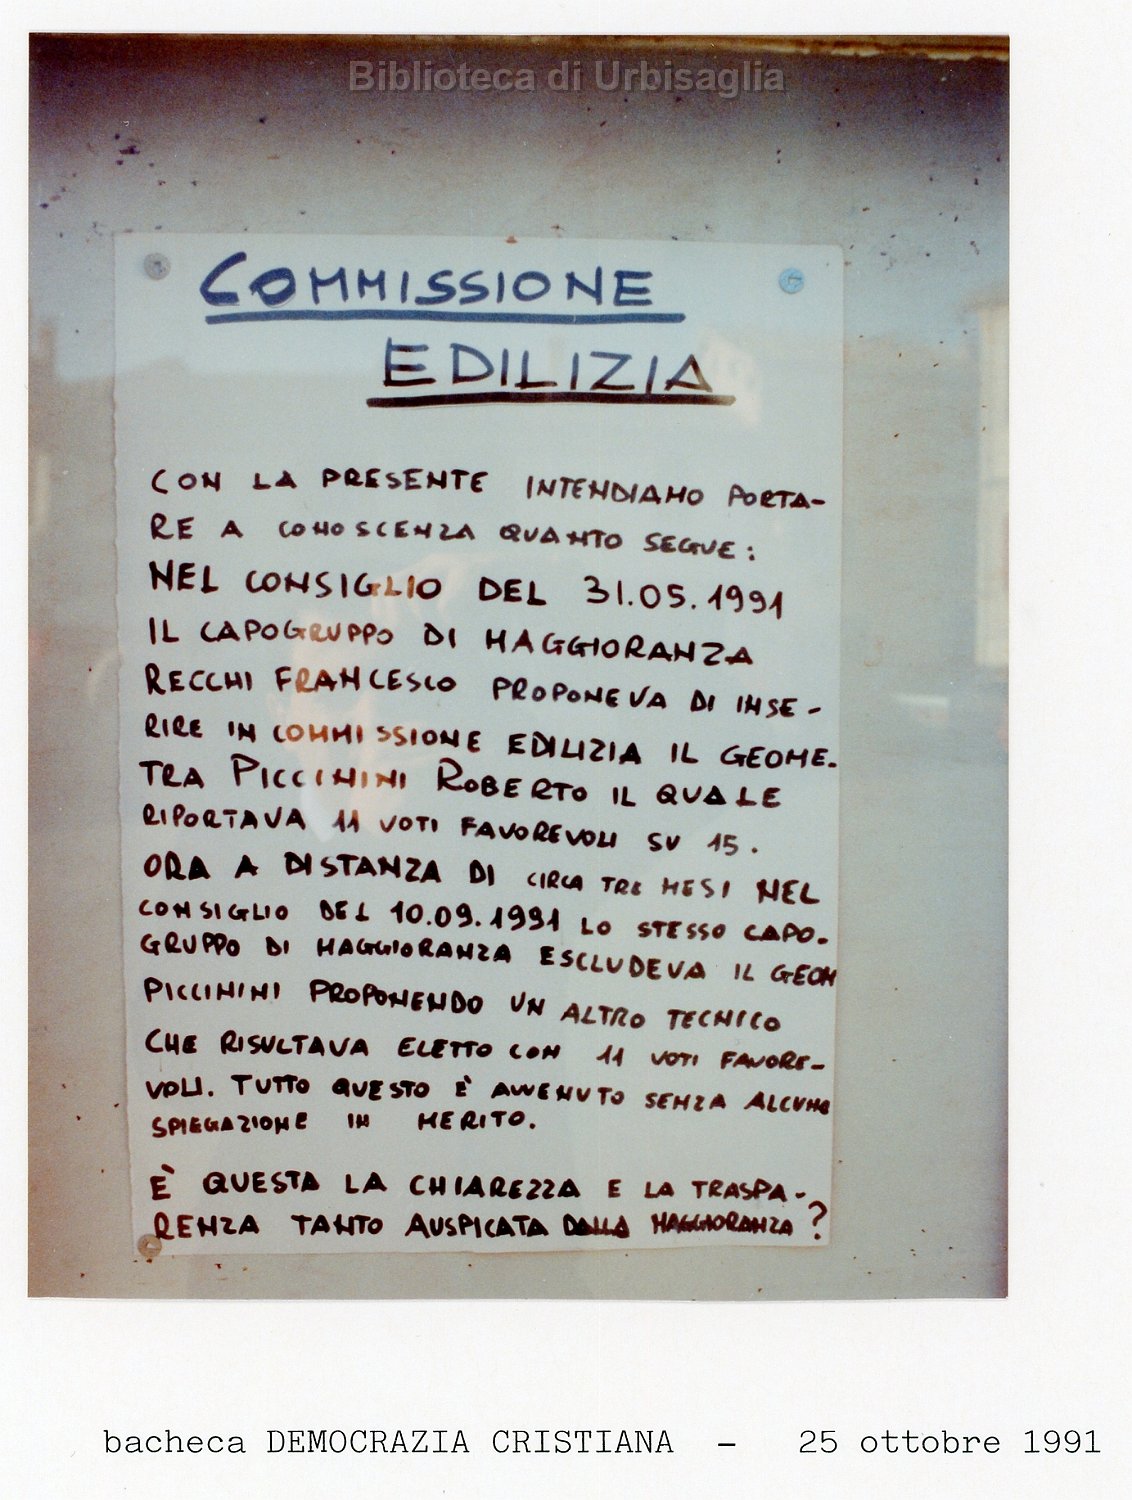 Biblioteca di Urbisaglia
COMMISSIONE
EDILIZIA
CON LA PRESENTE INTENDIAMO PORTA-
RE A CONOSCENZA QUANTO SEGUE:
NEL CONSIGLIO DEL 31.05.1991
IL CAPOGRUPPO DI MAGGIORANZA
RECCHI FRANCESCO PROPONEVA DI INSE-
RIRE IN COMMISSIONE EDILIZIA IL GEOME-
TRA PICCININI ROBERTO IL QUALE
RIPORTAVA 11 VOTI FAVOREVOLI SU 15.
ORA A DISTANZA DI CIRCA TRE MESI NEL
CONSIGLIO DEL 10.09.1991 LO STESSO CAPO-
GRUPPO DI MAGGIORANZA ESCLUDEVA IL GEOM
PICCININI PROPONENDO UN ALTRO TECNICO
CHE RISULTAVA ELETTO CON 11 VOTI FAVORE-
VOLI. TUTTO QUESTO È AVVENUTO SENZA ALCUNA
SPIEGAZIONE IN MERITO.
È QUESTA LA CHIAREZZA E LA TRASPA-
RENZA TANTO AUSPICATA DALLA MAGGIORANZA ?
bacheca DEMOCRAZIA CRISTIANA - 25 ottobre 1991